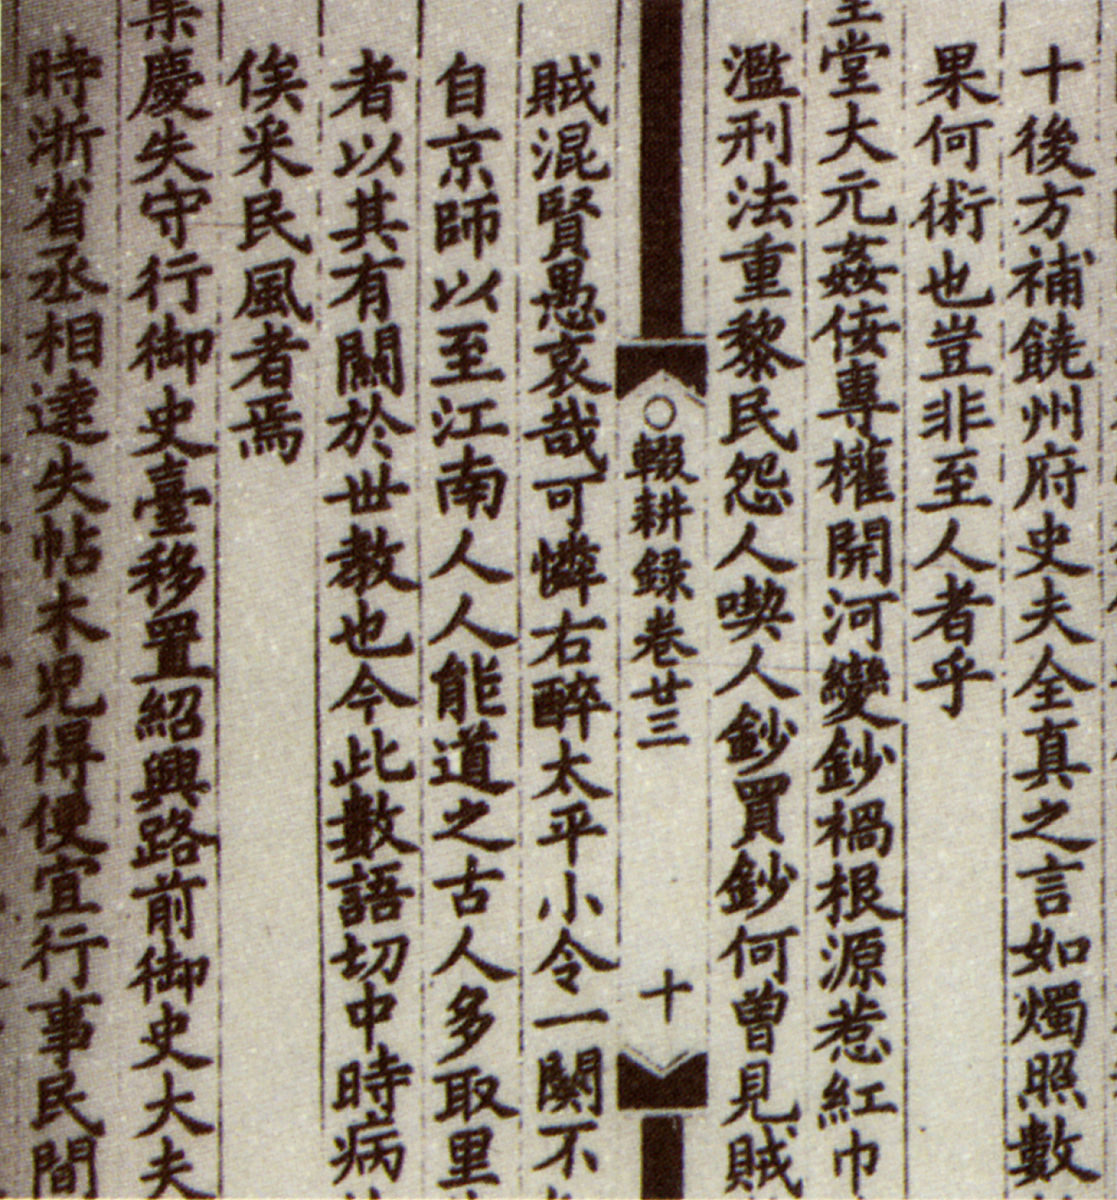 十後方補饒州府史夫全真之言如燭照數
果何術也豈非至人者乎
堂大元姦佞專權開河變鈔禍根源惹紅巾
濫刑法重黎民怨人喫人鈔買鈔何曾見賊
○輟耕録卷廿三 十
賊混賢愚哀哉可憐右醉太平小令一闋不
自京師以至江南人人能道之古人多取里
者以其有關於世教也今此數語切中時病
俟采民風者焉
慶失守行御史臺移置紹興路前御史大夫
時浙省丞相達失帖木児得便宜行事民間